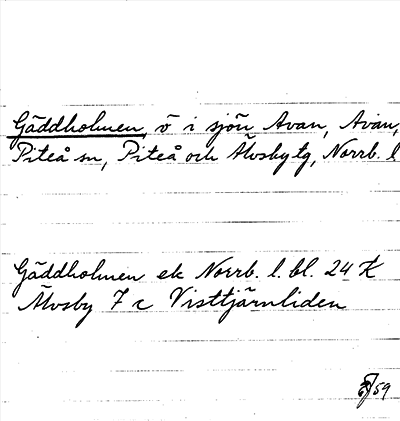 Gäddholmen, ö i sjön Avan, Avan,
Piteå sn, Piteå och Älvsby tg, Norrb. l
Gäddholmen ek Norrb. l. bl. 24 K
Älvsby 7 c Visttjärnliden
59